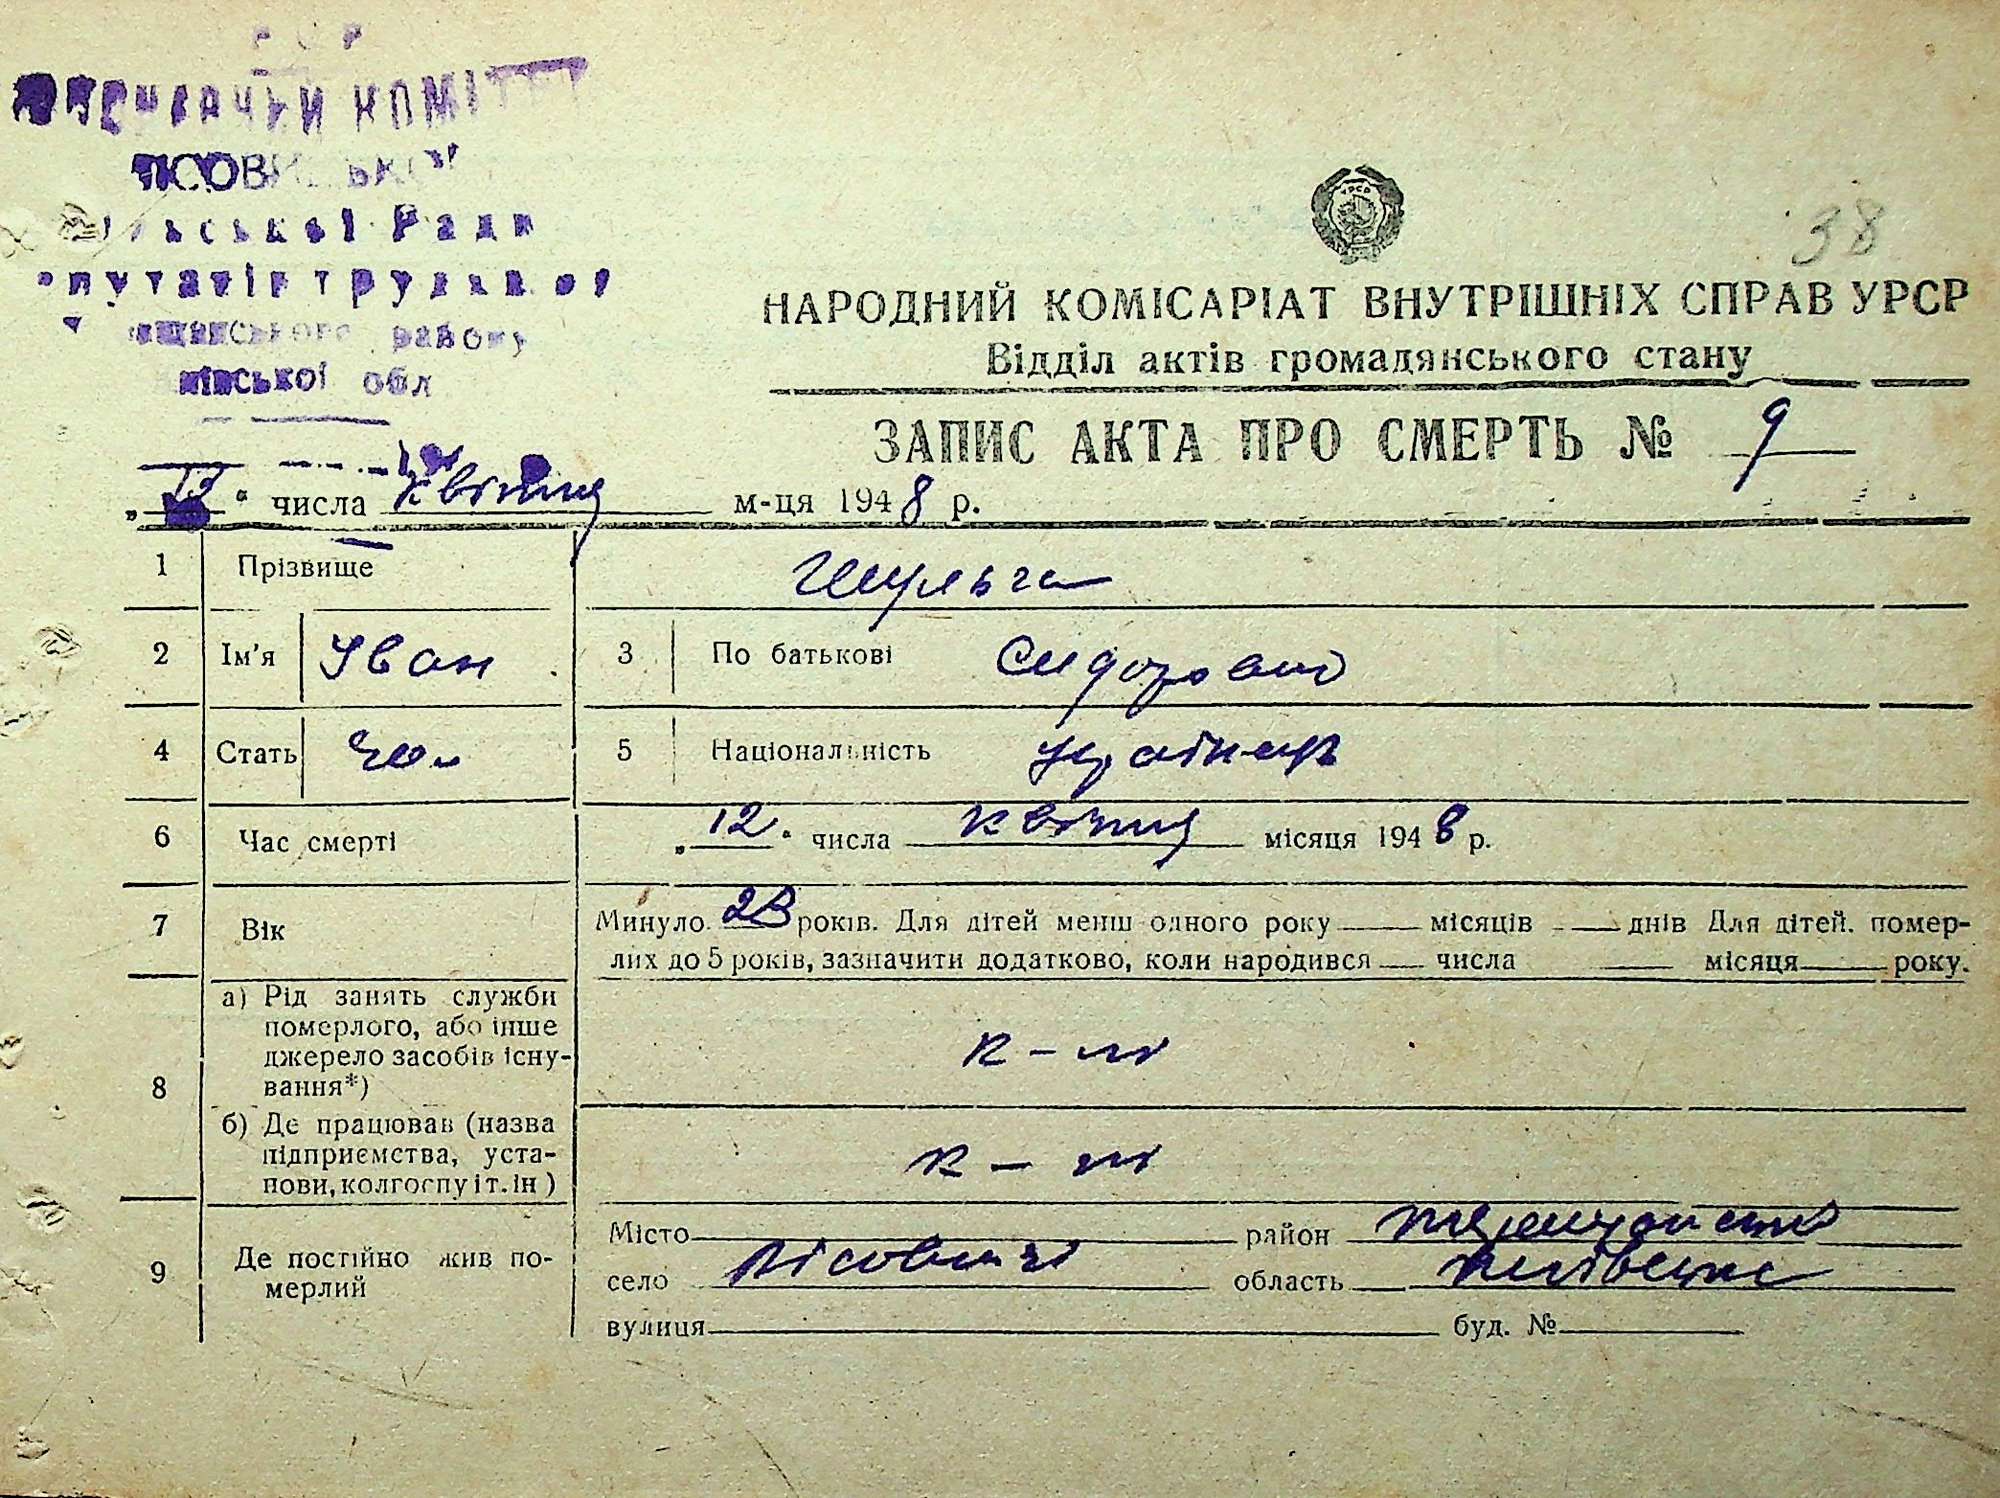 КОМІТЕТ
Ради
району
обл
38
НАРОДНИЙ КОМІСАРІАТ ВНУТРІШНІХ СПРАВ УРСР
Відділ актів громадянського стану
ЗАПИС АКТА ПРО СМЕРТЬ № 9
" " числа квітня м-ця 1948 р.
1 Прізвище Шульга
2 Ім'я Іван 3 По батькові Сидорович
4 Стать чол 5 Національність українець
6 Час смерті „12" числа квітня місяця 1948 р.
7 Вік Минуло 23 років. Для дітей менш одного року місяців днів Для дітей. помер-
лих до 5 років, зазначити додатково, коли народився числа місяця року.
8 а) Рід занять служби
померлого, або інше
джерело засобів існу-
вання*) к-п
б) Де працював (назва
підприємства, уста-
нови, колгоспу і т. ін) к-п
9 Де постійно жив по-
мерлий
Місто район
село Лісовичі область Київська
вулиця буд. №